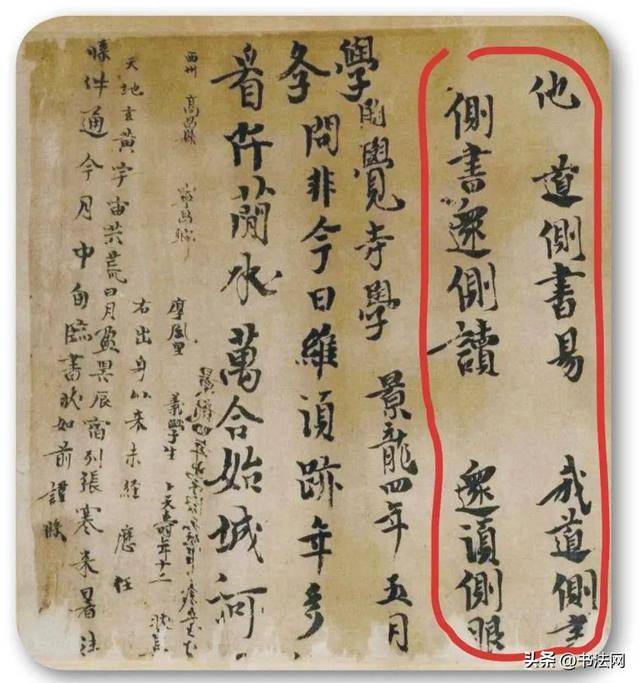 他 道側書易 我道側書
側書還側讀 還須側眼
學 開覺寺學 景龍四年五月
問非今日維須跡年多
看阡簡水萬合始城河
西州 高昌縣 寧昌鄉 厚風里 義學生 卜天壽年十二 狀具
右出身以來未經歷任
天地玄黃宇宙洪荒日月盈昃辰宿列張寒來暑往
牒件通今月中旬臨書狀如前謹牒
头条 @书法网